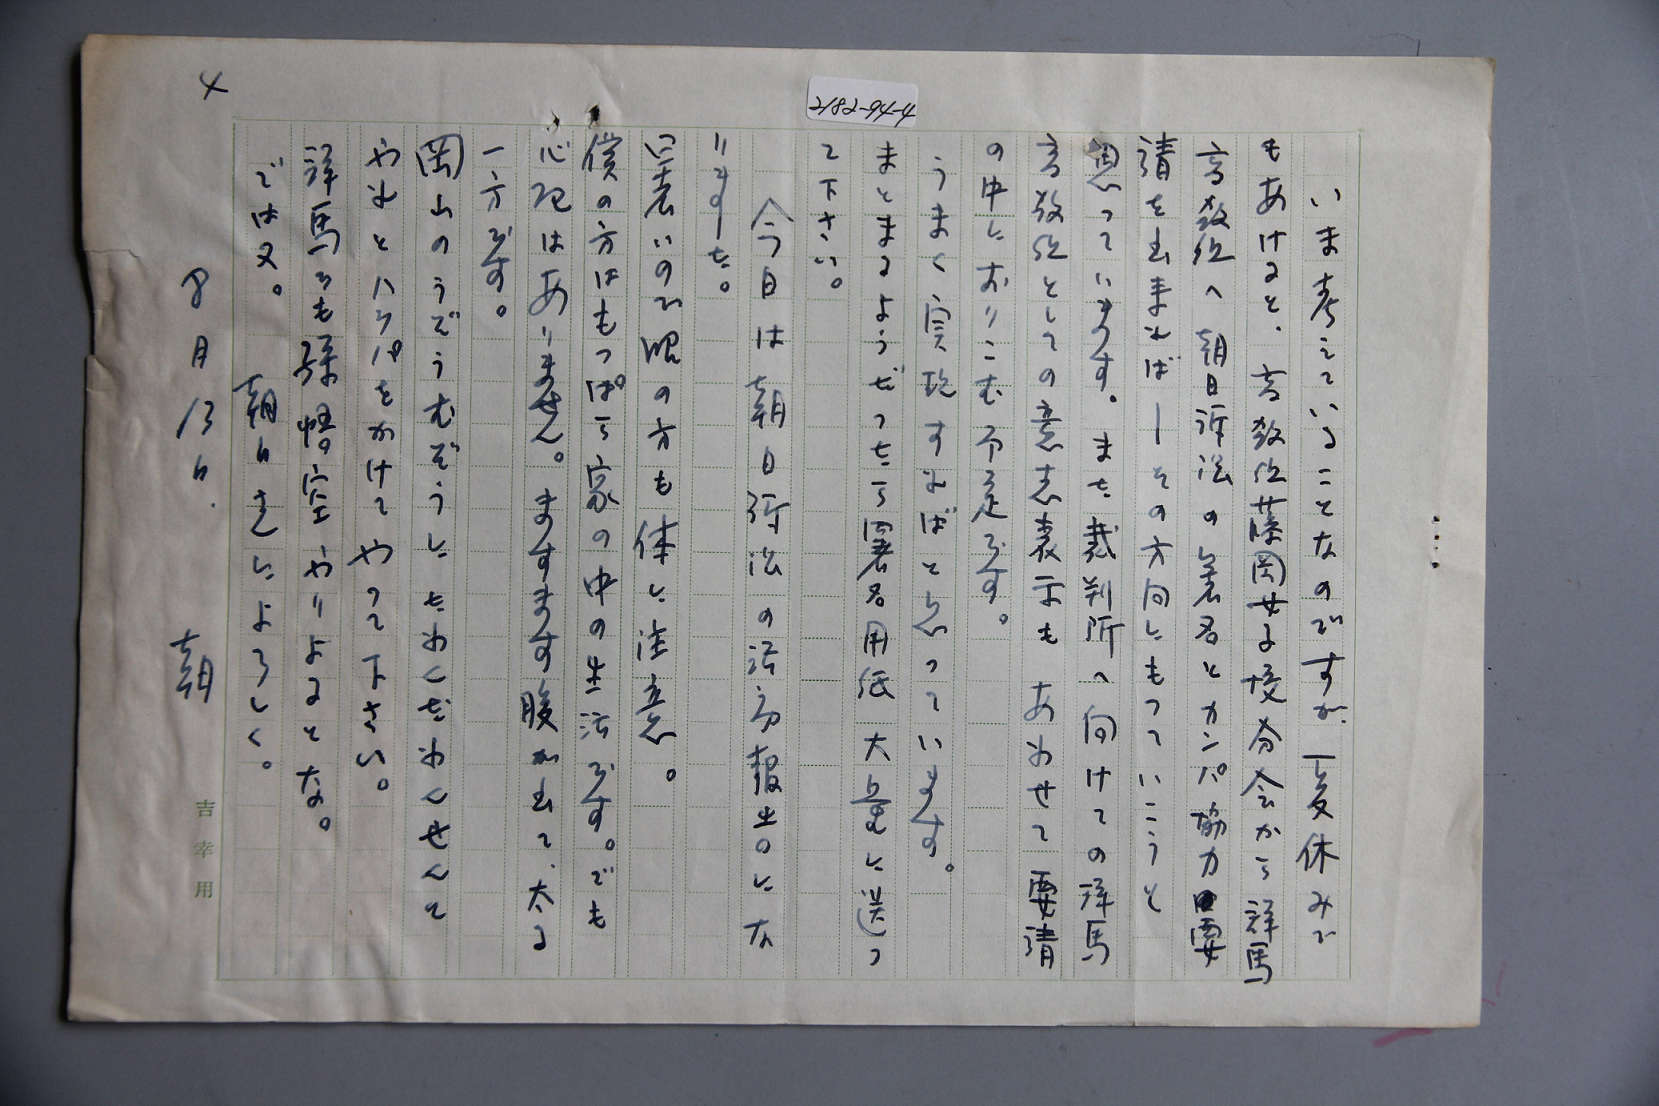 2182-94-4
いま考えていることなのですが、夏休みで
もあけると、高教組藤岡女子校分会から群馬
高教組へ朝日訴訟の署名とカンパ協力要
請を出まれば―その方向にもっていこうと
思っています。また裁判所へ向けての群馬
高教組としての意志表示も あわせて要請
の中におりこむ予定です。
うまく実現すればと思っています。
まとまるようだったら署名用紙大量に送っ
て下さい。
今日は朝日訴訟の活動報告のにな
りました。
暑いので眼の方も体に注意。
僕の方はもっぱら家の中の生活です。でも
心配はありません。ますます腹が出て、太る
一方です。
岡山のうぞうむぞうにたわくだわんせんと
やれとハッパをかけてやって下さい。
群馬らも孫悟空やりよるとな。
では又。 朝日さんによろしく。
8月13日. 朝
4
吉幸用